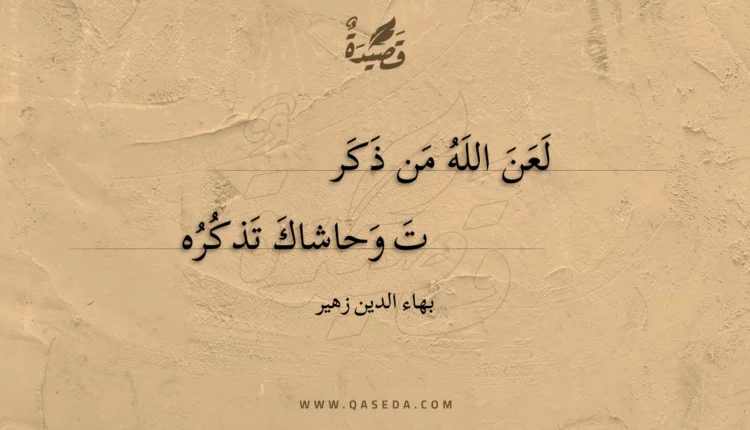 قَصِيدَةٌ
لَعَنَ اللَهُ مَن ذَكَر
تَ وَحاشاكَ تَذكُرُه
بهاء الدين زهير
WWW.QASEDA.COM